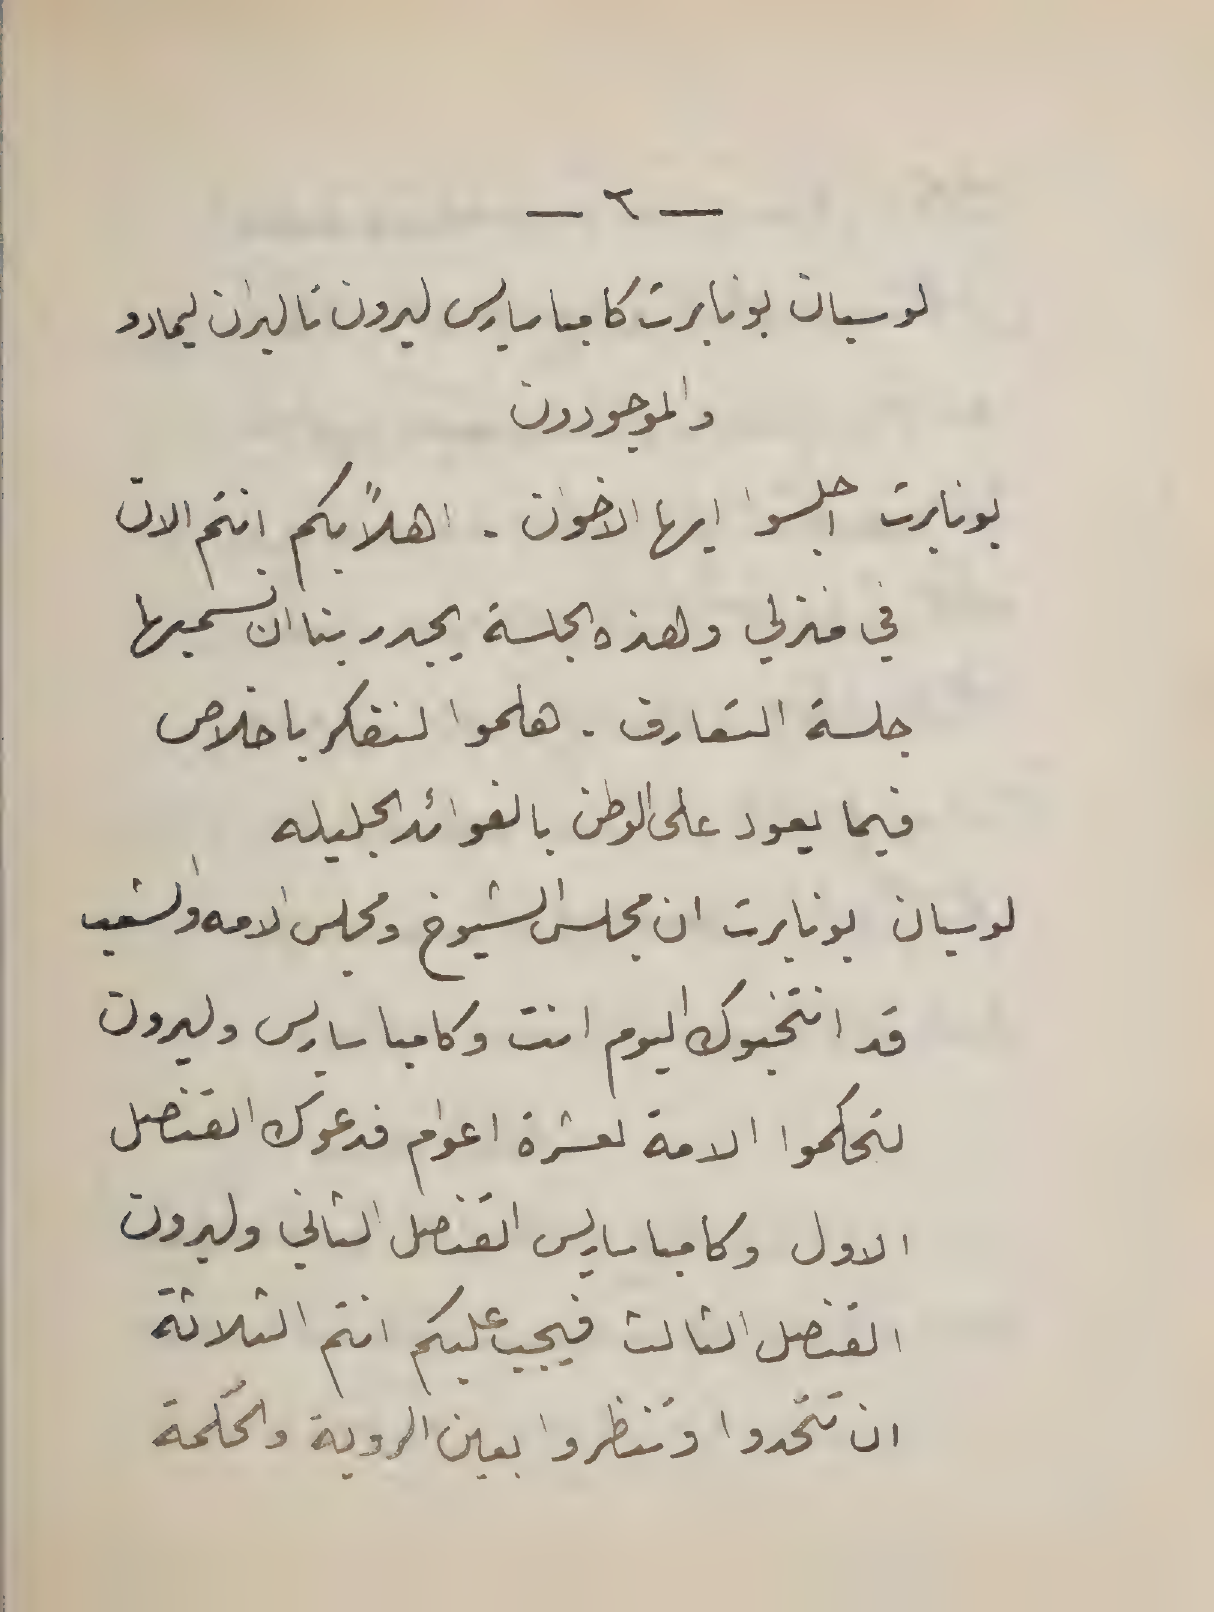 — ٦ —
لوسيان بونابرت كامباساريس ليبرون تاليران ليماردو
والموجودون
بونابرت اجلسوا ايها الاخوان . اهلاً بكم انتم الان
في منزلي ولهذه الجلسة يجدر بنا ان نسميها
جلسة التعارف . هلموا لنفكر باخلاص
فيما يعود على الوطن بالفوائد الجليله
لوسيان بونابرت ان مجلس الشيوخ ومجلس الامه والشعب
قد انتخبوك اليوم انت وكامباساريس وليبرون
لتحكموا الامة لعشرة اعوام فدعوك القنصل
الاول وكامباساريس القنصل الثاني وليبرون
القنصل الثالث فيجب عليكم انتم الثلاثة
ان تتحدوا وتنظروا بعين الروية والحكمة